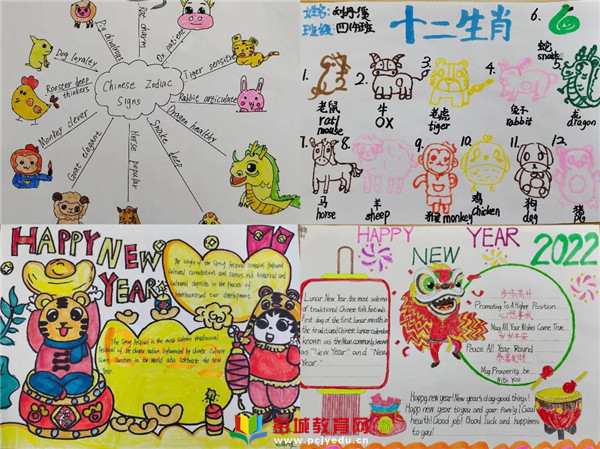 Rat charm
Ox patient
Tiger sensitive
Rabbit articulate
Dragon healthy
Snake deep
Horse popular
Goat elegant
Monkey clever
Rooster deep
thinkers
Dog loyalty
Chinese Zodiac
Signs
十二生肖
1.
老鼠
rat/
mouse
2.
牛
OX
3.
老虎
tiger
4.
兔子
rabbit
5.
龙
dragon
6.
蛇
snake
7.
马
horse
8.
羊
sheep
9.
monkey
10.
鸡
chicken
11.
狗
dog
12.
猪
HAPPY NEW
YEAR
The origin of the Spring Festival contains profound
The Spring Festival is the most solemn traditional
festival of the Chinese nation. Influenced by Chinese culture
HAPPY
NEW YEAR
2022
Lunar New Year, the most solemn
of traditional Chinese folk festivals
first day of the first lunar month in
the traditional Chinese lunar calendar
known as the Nian, commonly known
as "New Year" and "New
Year".
步步高升
Promoting To A Higher Position
心想事成
May All Your Wishes Come True
岁岁平安
Peace All Year Round
恭喜发财
May Prosperity be
With you
Happy new year! New year's day good things!
Happy new year to you and your family! Good
health! Good job! Good luck and happiness
to you!
教育网
www.pcjyedu.cn